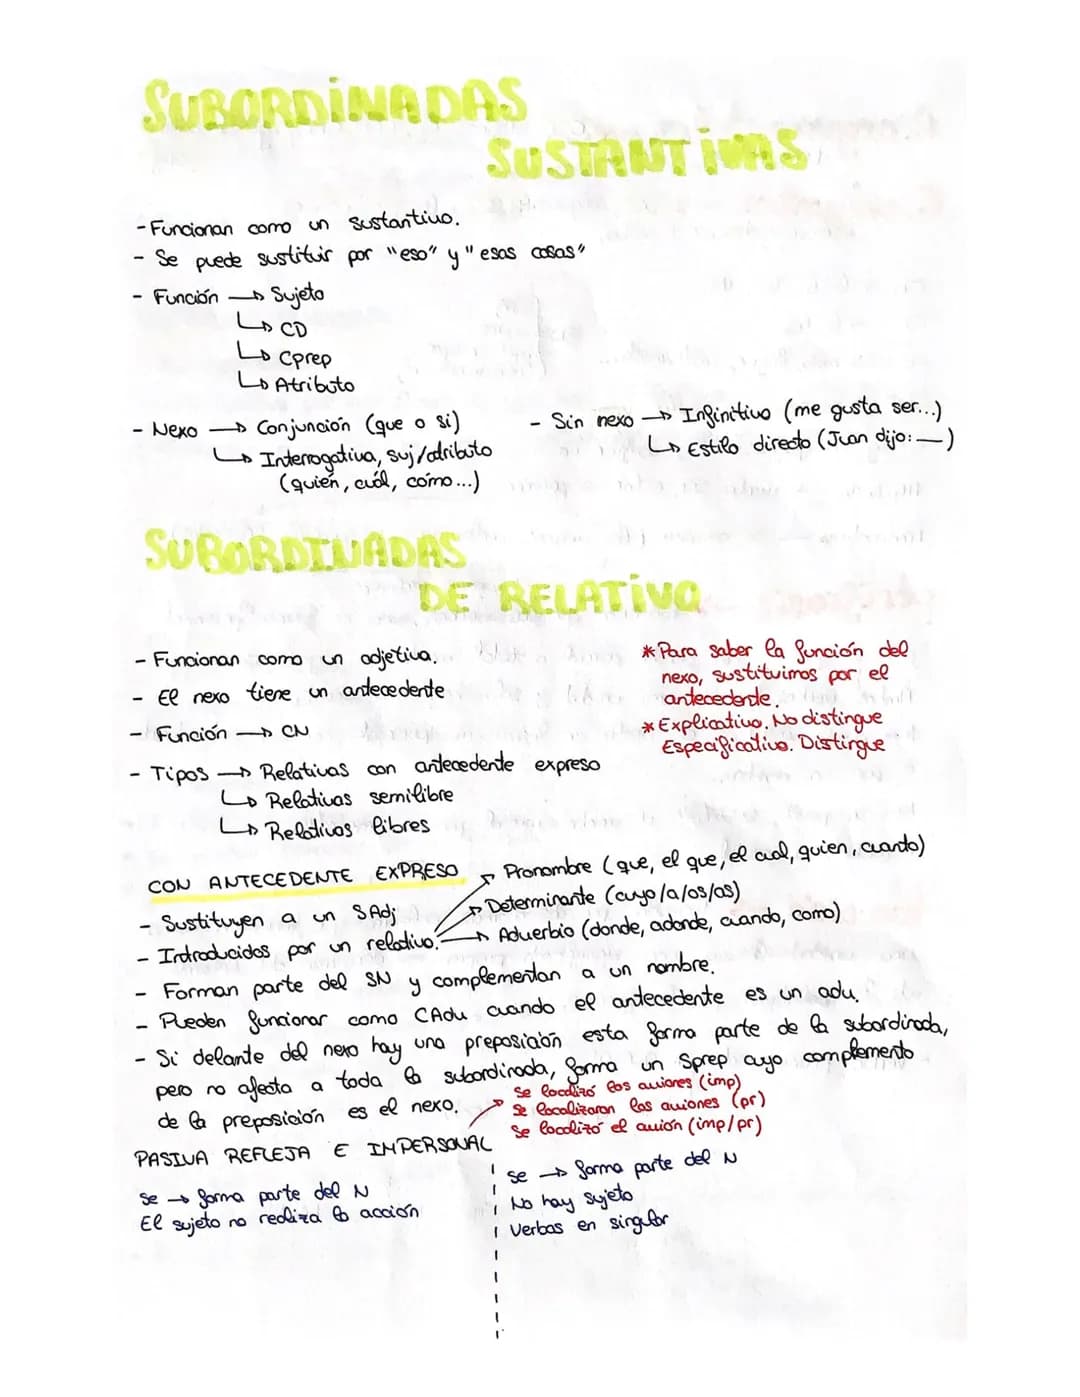 SUBORDINADAS
SUSTANTIVAS
- Funcionan como un sustantivo.
- Se puede sustituir por "eso" y "esas cosas"
- Función → Sujeto
↳ CD
↳ Cprep
↳ Atributo
- Nexo → Conjunción (que o si)
↳ Interrogativa, suj/atributo
(quién, cuál, cómo...)
- Sin nexo → Infinitivo (me gusta ser...)
↳ Estilo directo (Juan dijo: —)
SUBORDINADAS
DE RELATIVO
- Funcionan como un adjetivo.
- El nexo tiene un antecedente
- Función → CN
- Tipos → Relativas con antecedente expreso
↳ Relativas semilibre
↳ Relativas libres
* Para saber la función del
nexo, sustituimos por el
antecedente.
* Explicativo. No distingue
Especificativo. Distingue
CON ANTECEDENTE EXPRESO
- Sustituyen a un SAdj
- Introducidos por un relativo.
→ Pronombre (que, el que, el cual, quien, cuanto)
→ Determinante (cuyo/a/os/as)
→ Adverbio (donde, adonde, cuando, como)
- Forman parte del SN y complementan a un nombre.
- Pueden funcionar como CAdv cuando el antecedente es un adv.
- Si delante del nexo hay una preposición esta forma parte de la subordinada,
pero no afecta a toda la subordinada, forma un Sprep cuyo complemento
de la preposición es el nexo.
PASIVA REFLEJA E IMPERSONAL
→ Se localizó los aviones (imp)
Se localizaron los aviones (pr)
Se localizó el avión (imp/pr)
Se → forma parte del N
El sujeto no realiza la acción
Se → forma parte del N
No hay sujeto
Verbos en singular